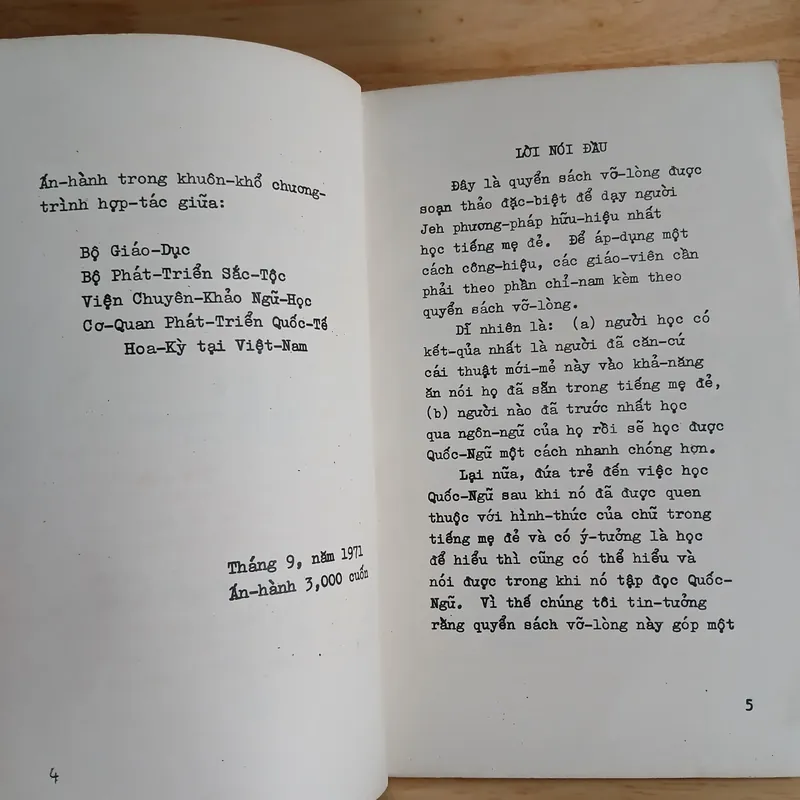 Ấn-hành trong khuôn-khổ chương-
trình hợp-tác giữa:
Bộ Giáo-Dục
Bộ Phát-Triển Sắc-Tộc
Viện Chuyên-Khảo Ngữ-Học
Cơ-Quan Phát-Triển Quốc-Tế
Hoa-Kỳ tại Việt-Nam
Tháng 9, năm 1971
Ấn-hành 3,000 cuốn
4
LỜI NÓI ĐẦU
Đây là quyển sách vỡ-lòng được
soạn thảo đặc-biệt để dạy người
Jeh phương-pháp hữu-hiệu nhất
học tiếng mẹ đẻ. Để áp-dụng một
cách công-hiệu, các giáo-viên cần
phải theo phần chỉ-nam kèm theo
quyển sách vỡ-lòng.
Dĩ nhiên là: (a) người học có
kết-qủa nhất là người đã căn-cứ
cái thuật mới-mẻ này vào khả-năng
ăn nói họ đã sẵn trong tiếng mẹ đẻ,
(b) người nào đã trước nhất học
qua ngôn-ngữ của họ rồi sẽ học được
Quốc-Ngữ một cách nhanh chóng hơn.
Lại nữa, đứa trẻ đến việc học
Quốc-Ngữ sau khi nó đã được quen
thuộc với hình-thức của chữ trong
tiếng mẹ đẻ và có ý-tưởng là học
để hiểu thì cũng có thể hiểu và
nói được trong khi nó tập đọc Quốc-
Ngữ. Vì thế chúng tôi tin-tưởng
rằng quyển sách vỡ-lòng này góp một
5